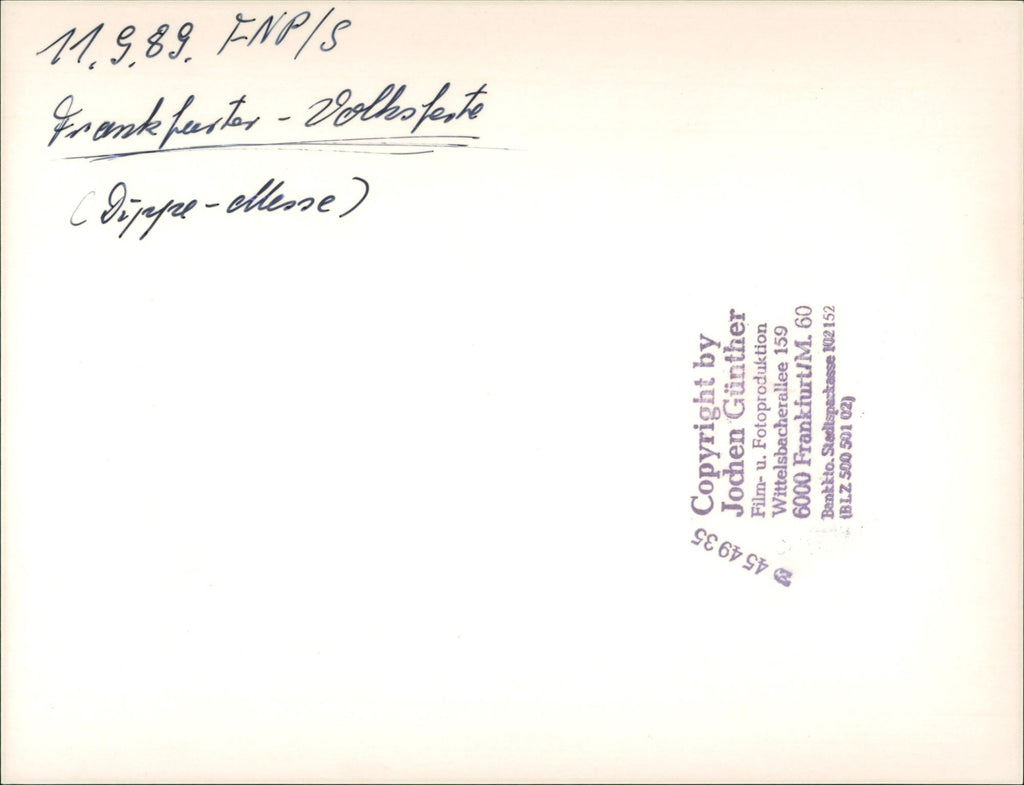 11.9.89. FNP/S
Frankfurter - Volksfeste
(Dippe-Messe)
Copyright by
Jochen Günther
Film- u. Fotoproduktion
Wittelsbacherallee 159
6000 Frankfurt/M. 60
Bankkto. Stadtsparkasse 102152
(BLZ 500 501 02)
45 49 35